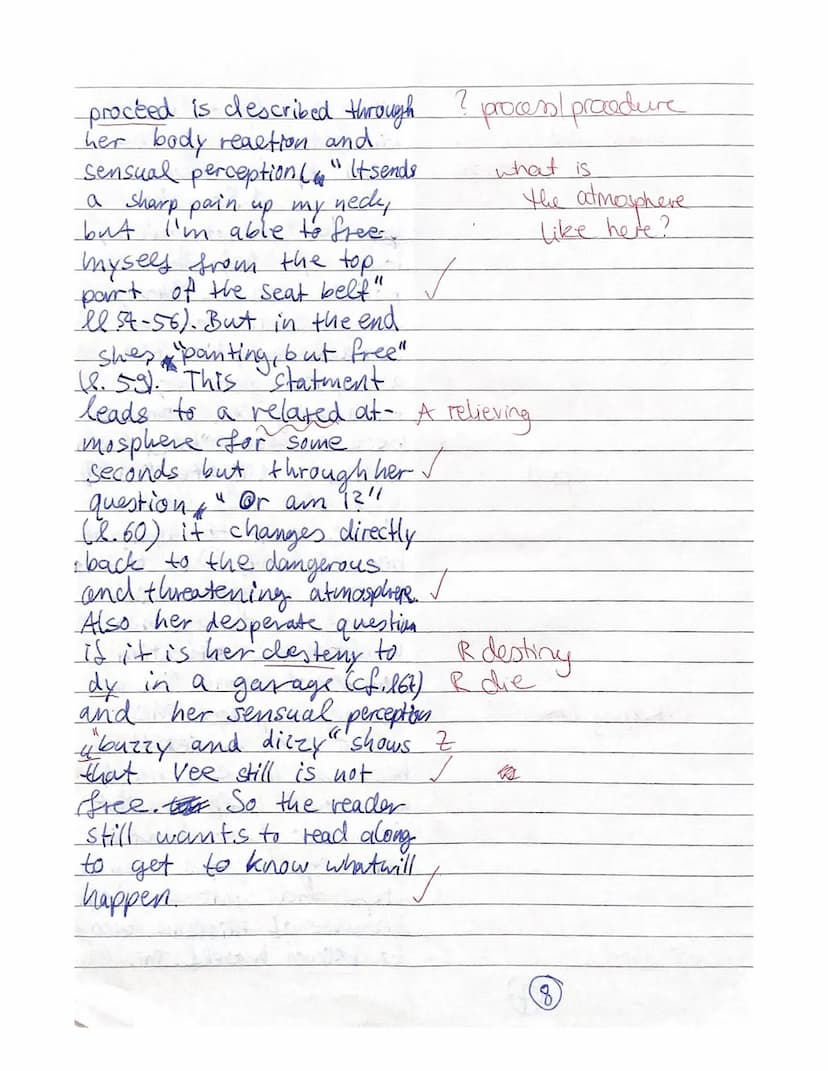 proceed is described through ? process/procedure
her body reaction and
sensual perception („" It sends what is
a sharp pain up my neck, the atmosphere
but I'm able to free like here?
myself from the top
part of the seat belt" ✓
ll 54-56). But in the end
shes „"panting, but free"
(l. 59). This statment
leads to a related at- A relieving
mosphere for some
seconds but through her ✓
question „" Or am I?"
(l. 60) it changes directly
back to the dangerous
and threatening atmosphere. ✓
Also her desperate question
if it is her desteny to R destiny
dy in a garage (cf. l67) R die
and her sensual perception
„"buzzy and dizzy" shows Z
that Vee still is not ✓
free. So the reader
still wants to read along
to get to know what will
happen. ✓
8